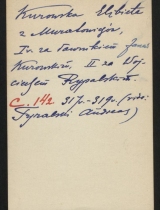 Kurowska Elżbieta
z Muratowiczów,
I v. za Sławnikiem Janem
Kurowskim, II za Woj-
ciechem Rypalskim
C. 142 317v.-319v. (vide:
Tyralski Andreas)